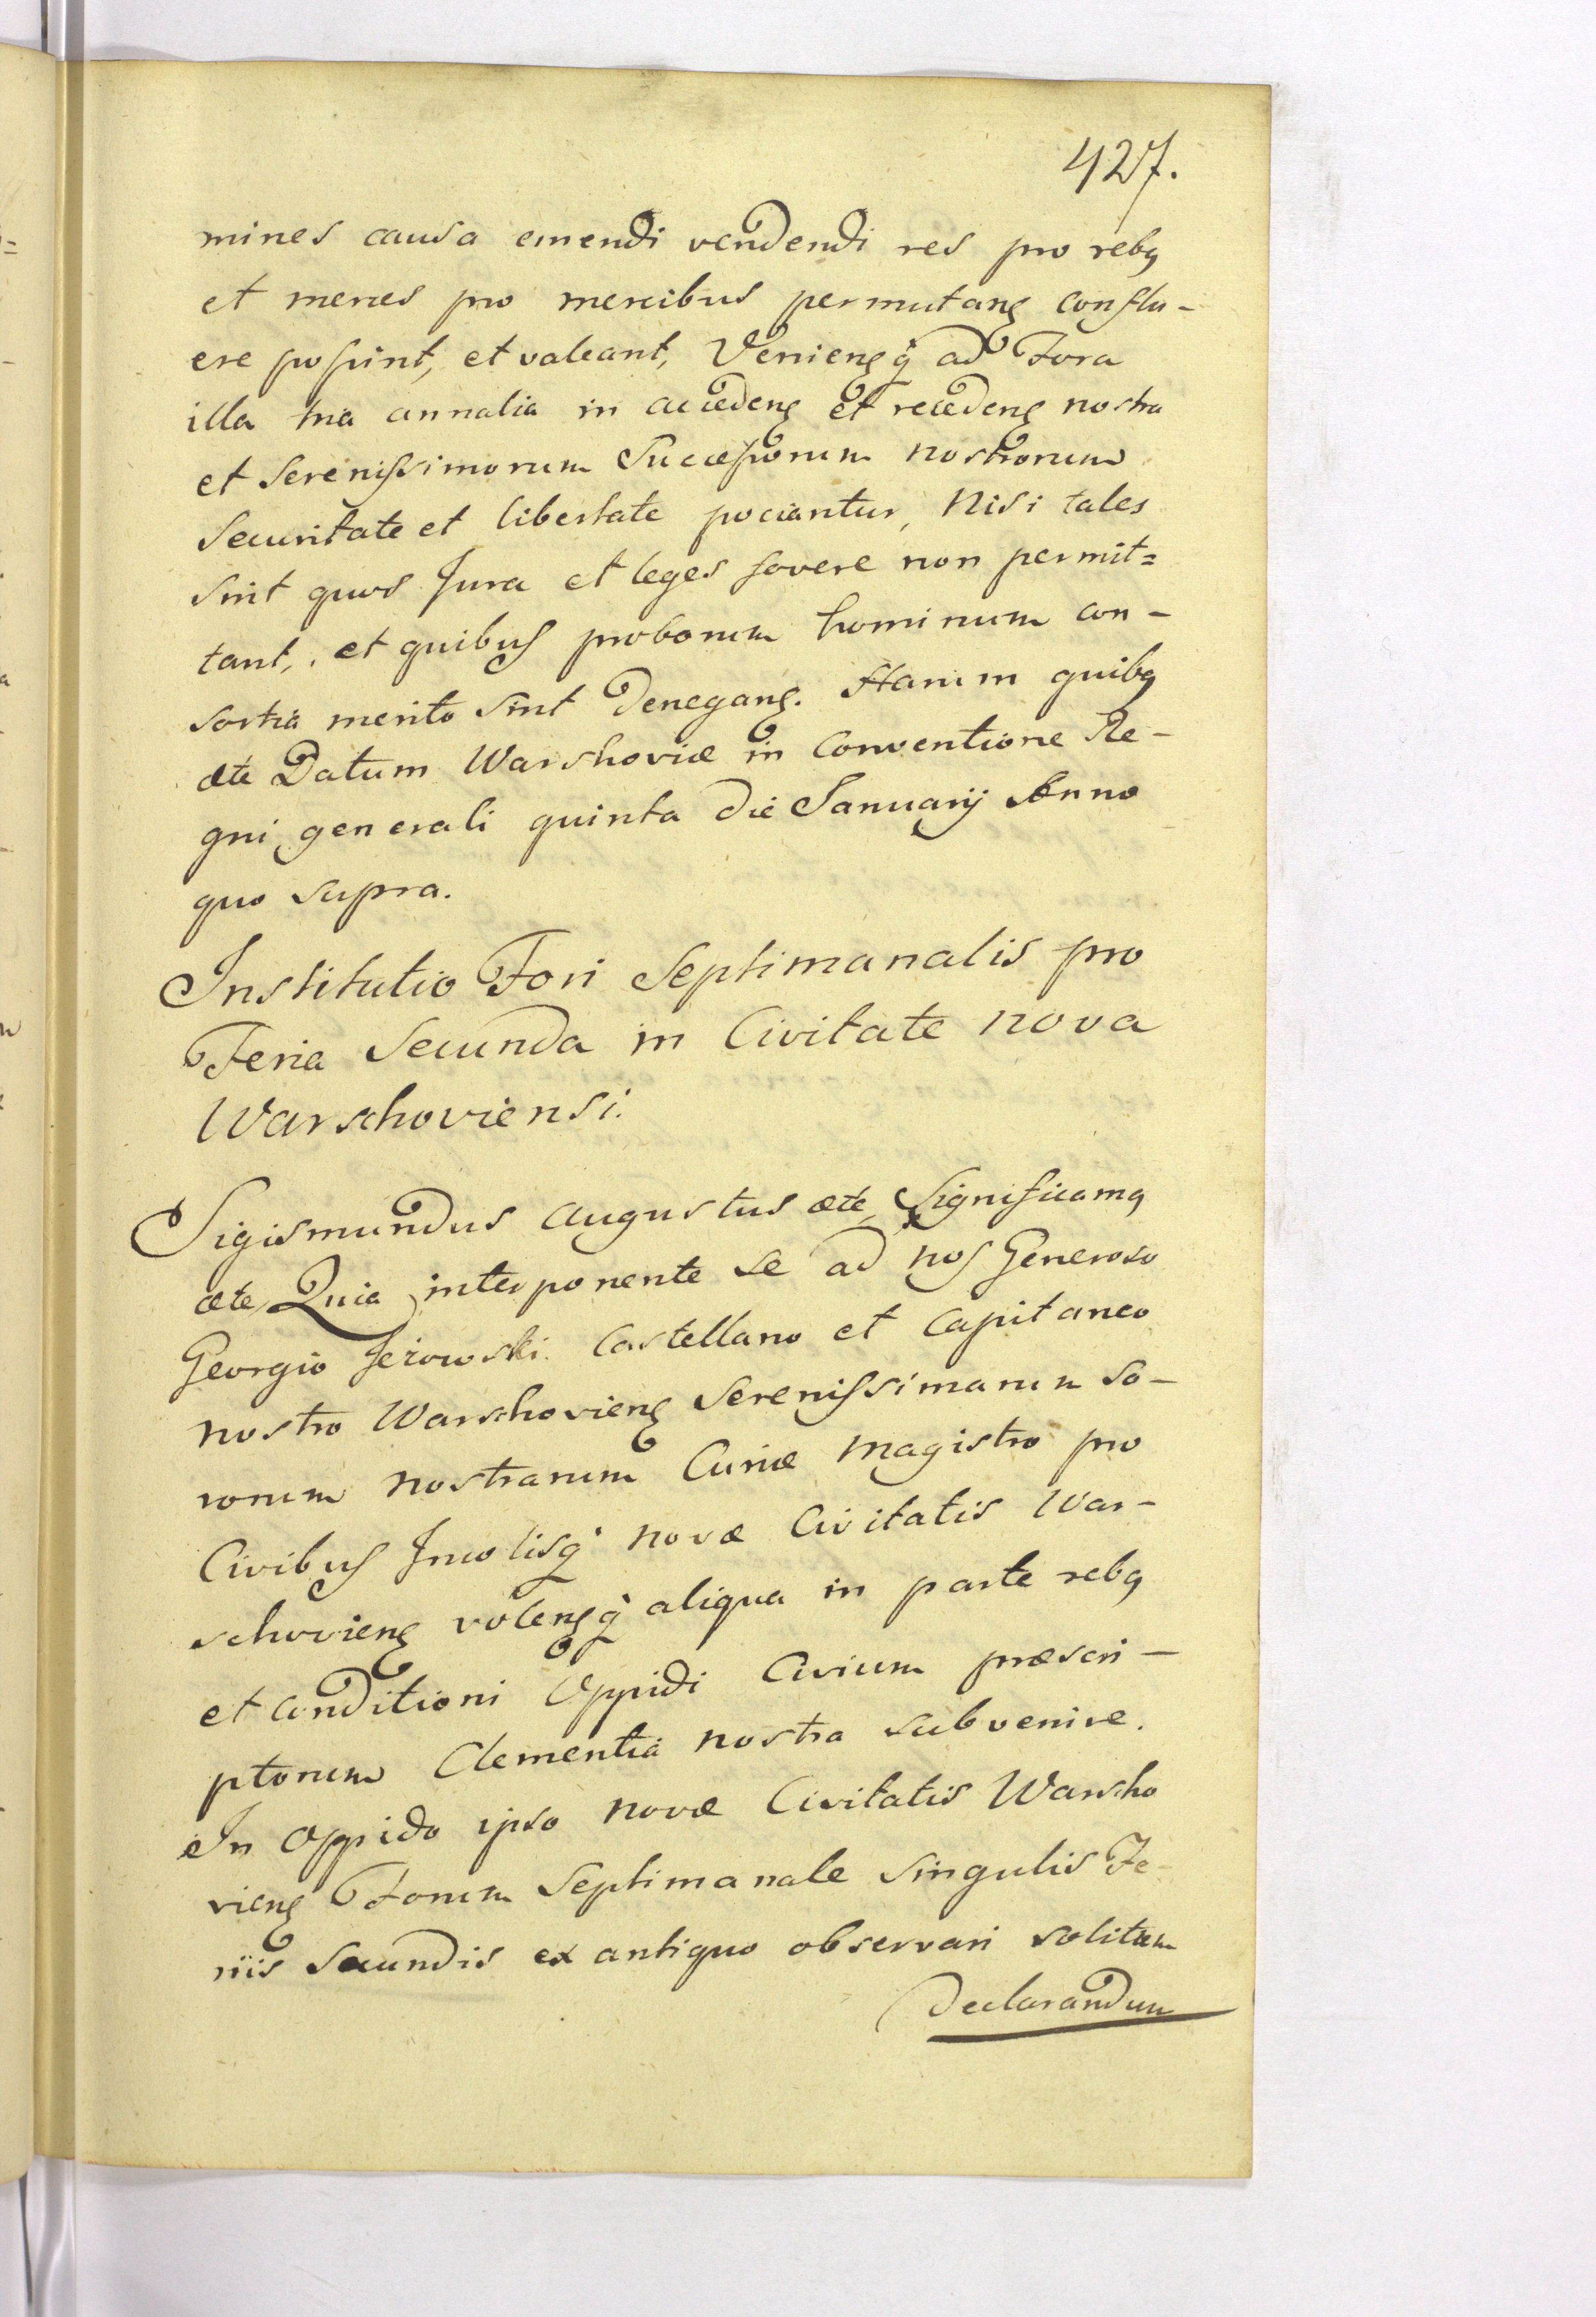 427.
mines causa emendi vendendi res pro rebq
et merces pro mercibus permutang conflu-
ere possint, et valeant, Veniengq ad Fora
illa tria annalia in accedeng et recedeng nostra
et Serenissimorum Successorum nostrorum
Securitate et libertate pociantur, Nisi tales
sint quos Jura et leges fovere non permit=
tant, et quibus proborum hominum con-
sortia merito sint denegang. Harum quibq
ete Datum Warshoviæ in Conventione Re-
gni generali quinta die Januarij Anno
quo supra.
Institutio Fori Septimanalis pro
Feria Secunda in Civitate nova
Warschoviensi.
Sigismundus Augustus ete Significamq
ete, Quia interponente se ad nos Generoso
Georgio Jezowski Castellano et Capitaneo
nostro Warschovieng Serenissimarum So-
rorum nostrarum Curiæ Magistro pro
Civibus Incolisq novæ Civitatis War-
schovieng volengq aliqua in parte rebq
et conditioni Oppidi Civium præscri-
ptorum Clementia nostra subvenire.
In Oppido ipso novæ Civitatis Warscho
vieng Forum Septimanale singulis Fe-
riis Secundis ex antiquo observari solitum
declarandum